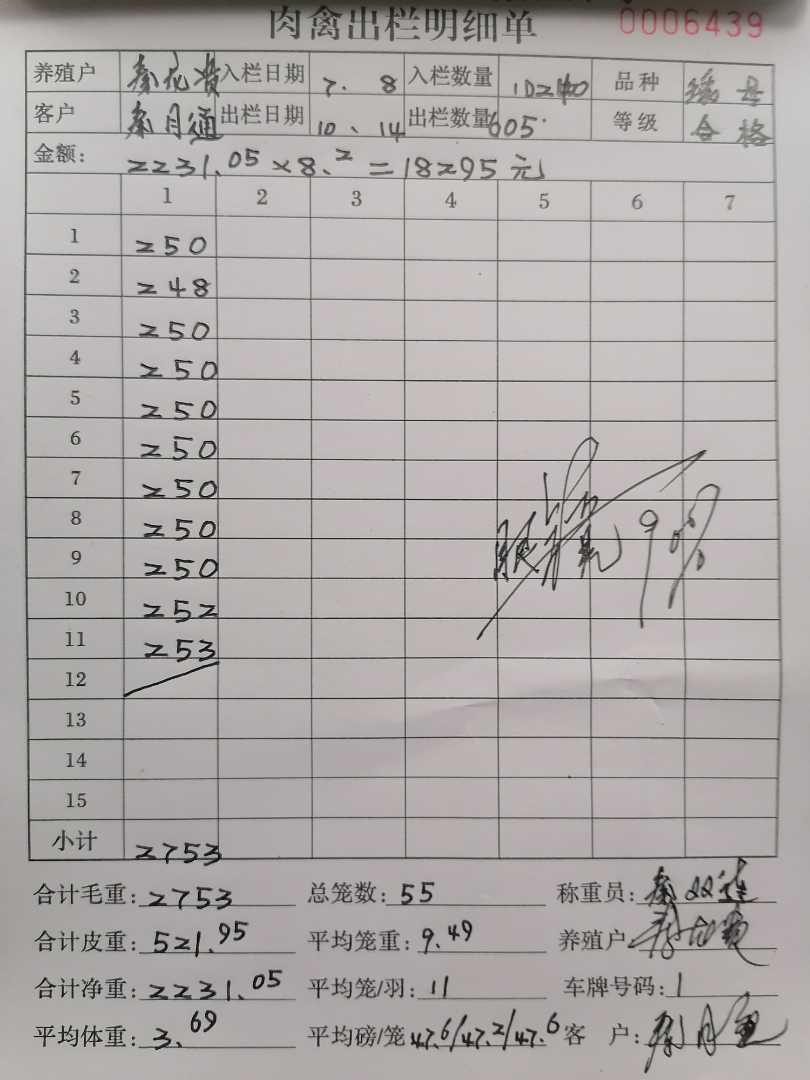 肉禽出栏明细单 0006439
养殖户 秦花贵 入栏日期 7. 8 入栏数量 品种
客户 秦月通 出栏日期 10、14 出栏数量 605 等级 合格
金额: 2231.05×8.2=18295元
1 2 3 4 5 6 7
1 250
2 248
3 250
4 250
5 250
6 250
7 250
8 250
9 250
10 252
11 253
12
13
14
15
90%
小计 2753
合计毛重: 2753 总笼数: 55 称重员: 秦双莲
合计皮重: 521.95 平均笼重: 9.49 养殖户:
合计净重: 2231.05 平均笼/羽: 11 车牌号码: 1
平均体重: 3.69 平均磅/笼 47.6/47.2/47.6 客 户: 秦月通